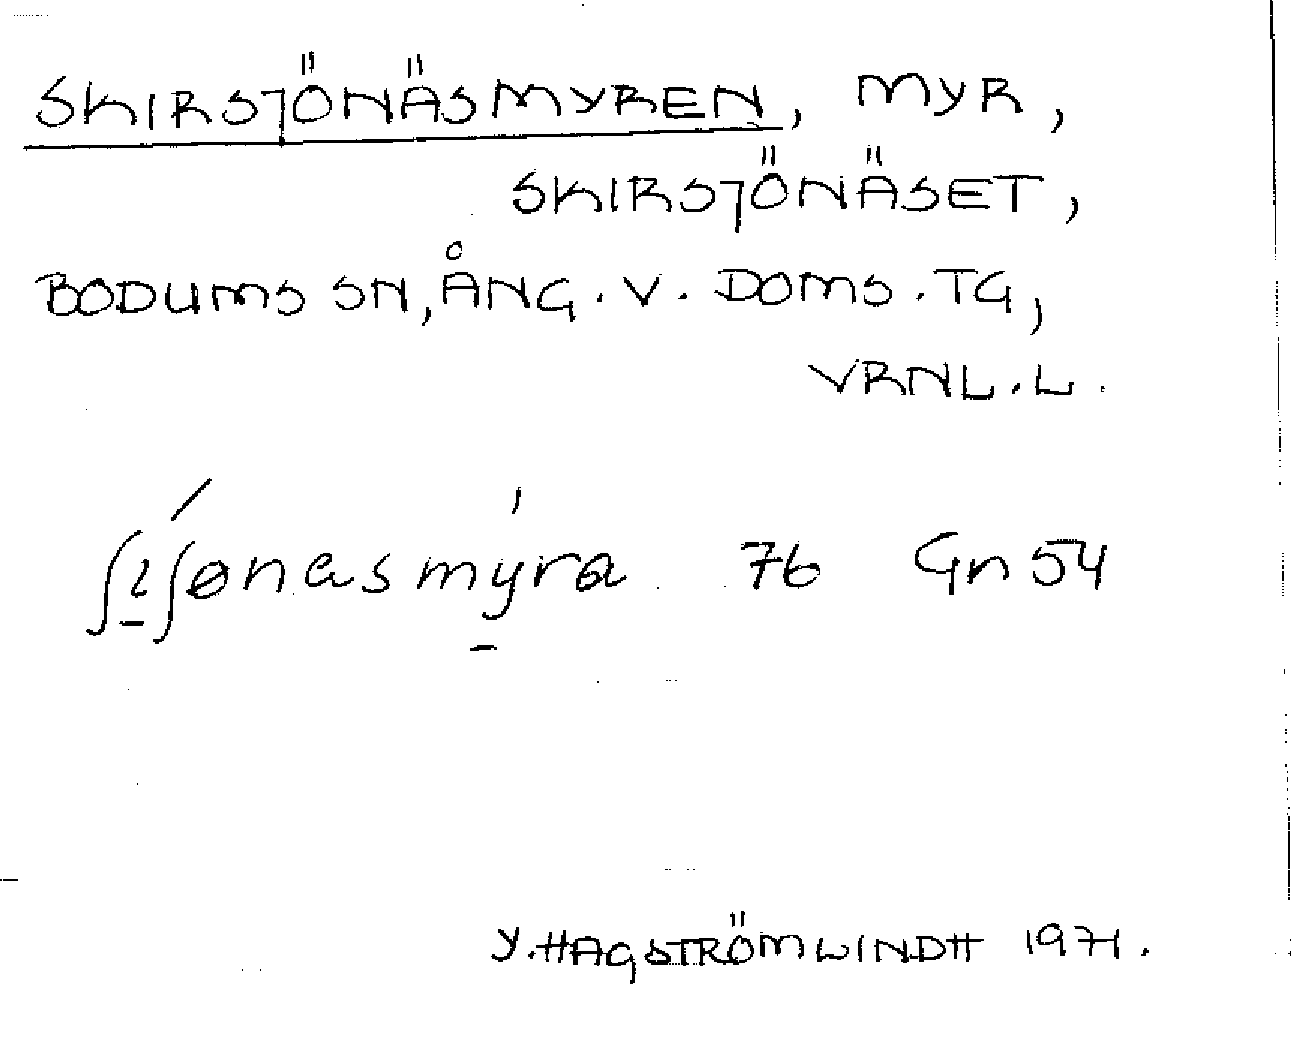 SKIRSJÖNÄSMYREN, MYR,
SKIRSJÖNÄSET,
BODUMS SN, ÅNG. V. DOMS. TG,
VRNL. L.
76 Gn 54
Y. HAGSTRÖM LINDH 1971.